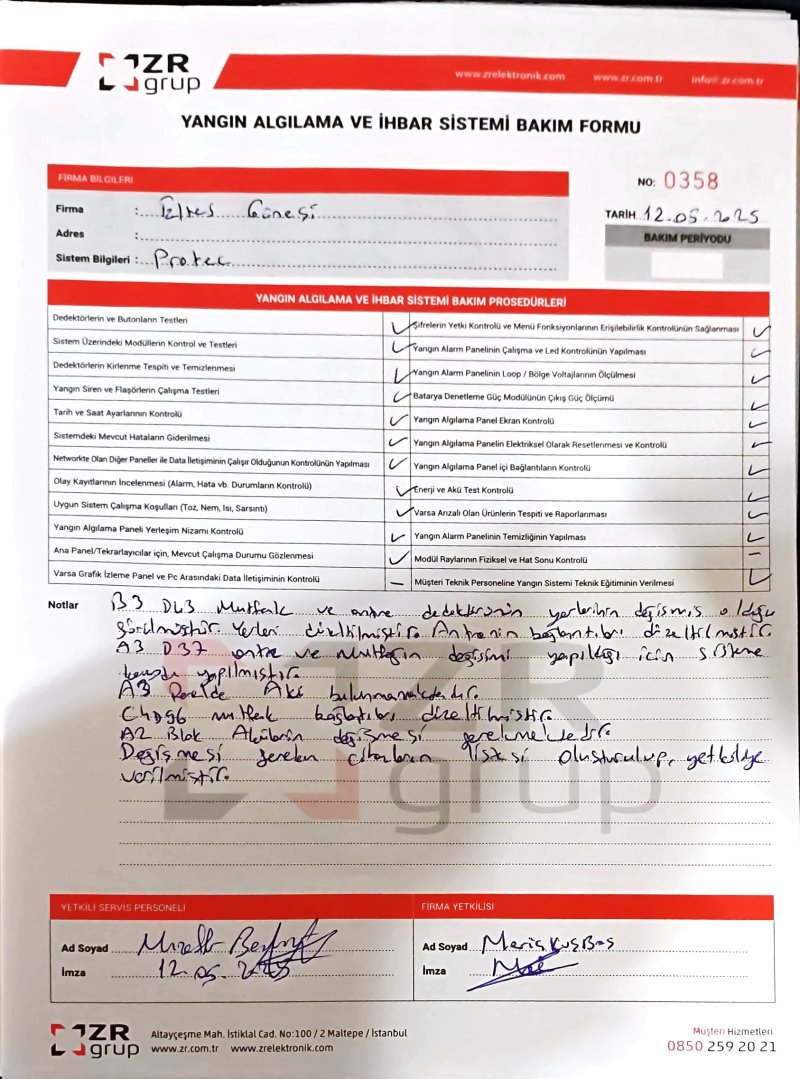 ZR
grup
www.zrelektronik.com www.zr.com.tr info@zr.com.tr
YANGIN ALGILAMA VE İHBAR SİSTEMİ BAKIM FORMU
FİRMA BİLGİLERİ
NO: 0358
Firma : Güneşi
TARİH 12.05.2025
Adres :
BAKIM PERİYODU
Sistem Bilgileri : Protec
YANGIN ALGILAMA VE İHBAR SİSTEMİ BAKIM PROSEDÜRLERİ
Dedektörlerin ve Butonların Testleri ✓ Şifrelerin Yetki Kontrolü ve Menü Fonksiyonlarının Erişilebilirlik Kontrolünün Sağlanması ✓
Sistem Üzerindeki Modüllerin Kontrol ve Testleri ✓ Yangın Alarm Panelinin Çalışma ve Led Kontrolünün Yapılması ✓
Dedektörlerin Kirlenme Tespiti ve Temizlenmesi ✓ Yangın Alarm Panelinin Loop / Bölge Voltajlarının Ölçülmesi ✓
Yangın Siren ve Flaşörlerin Çalışma Testleri ✓ Batarya Denetleme Güç Modülünün Çıkış Güç Ölçümü ✓
Tarih ve Saat Ayarlarının Kontrolü ✓ Yangın Algılama Panel Ekran Kontrolü ✓
Sistemdeki Mevcut Hataların Giderilmesi ✓ Yangın Algılama Panelin Elektriksel Olarak Resetlenmesi ve Kontrolü ✓
Networkte Olan Diğer Paneller ile Data İletişiminin Çalışır Olduğunun Kontrolünün Yapılması ✓ Yangın Algılama Panel içi Bağlantıların Kontrolü ✓
Olay Kayıtlarının İncelenmesi (Alarm, Hata vb. Durumların Kontrolü) ✓ Enerji ve Akü Test Kontrolü ✓
Uygun Sistem Çalışma Koşulları (Toz, Nem, Isı, Sarsıntı) ✓ Varsa Arızalı Olan Ürünlerin Tespiti ve Raporlanması ✓
Yangın Algılama Paneli Yerleşim Nizamı Kontrolü ✓ Yangın Alarm Panelinin Temizliğinin Yapılması ✓
Ana Panel/Tekrarlayıcılar için, Mevcut Çalışma Durumu Gözlenmesi ✓ Modül Raylarının Fiziksel ve Hat Sonu Kontrolü –
Varsa Grafik İzleme Panel ve Pc Arasındaki Data İletişiminin Kontrolü – Müşteri Teknik Personeline Yangın Sistemi Teknik Eğitiminin Verilmesi ✓
Notlar B3 Mutfak ve antre dedektörünün yerlerinin değişmiş olduğu
görülmüştür. Yerleri düzeltilmiştir. Antrenin bağlantıları düzeltilmiştir.
A3 D37 antre ve mutfağın değişimi yapıldığı için sisteme
yapılmıştır.
A3 Panelde Akü bulunmamaktadır.
mutfak bağlantıları düzeltilmiştir.
A2 Blok Akülerin değişmesi gerekmektedir.
Değişmesi gereken cihazların listesi oluşturulup, yetkiliye
verilmiştir.
YETKİLİ SERVİS PERSONELİ FİRMA YETKİLİSİ
Ad Soyad Ad Soyad
İmza 12.05.2025 İmza
ZR
grup
Altayçeşme Mah. İstiklal Cad. No:100 / 2 Maltepe / İstanbul
www.zr.com.tr www.zrelektronik.com
Müşteri Hizmetleri
0850 259 20 21